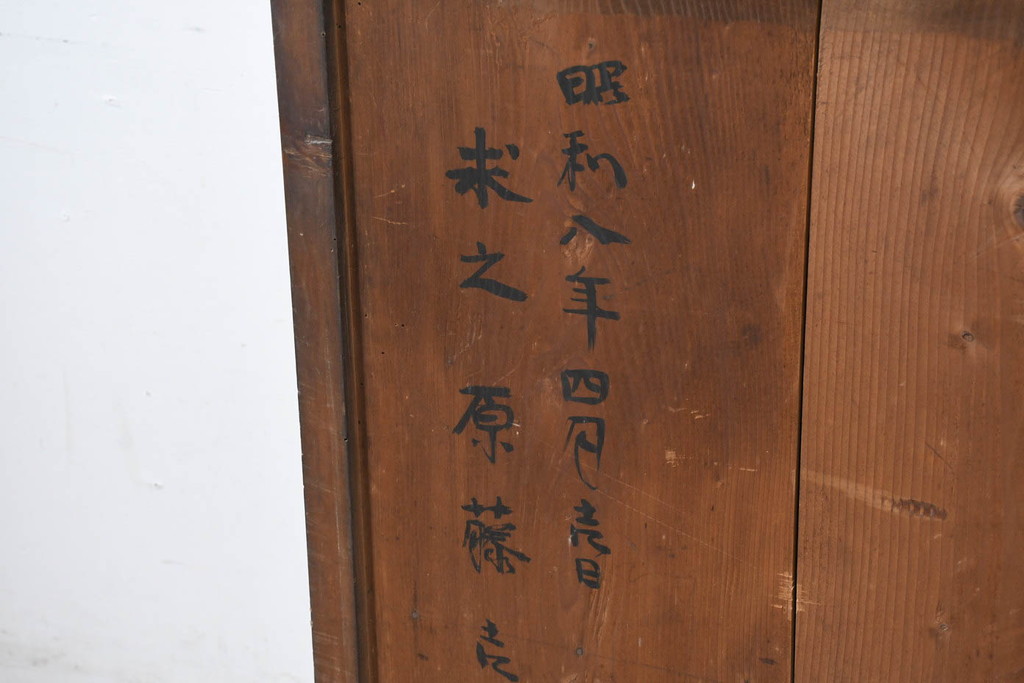 昭和八年四月壱日
求之 原藤